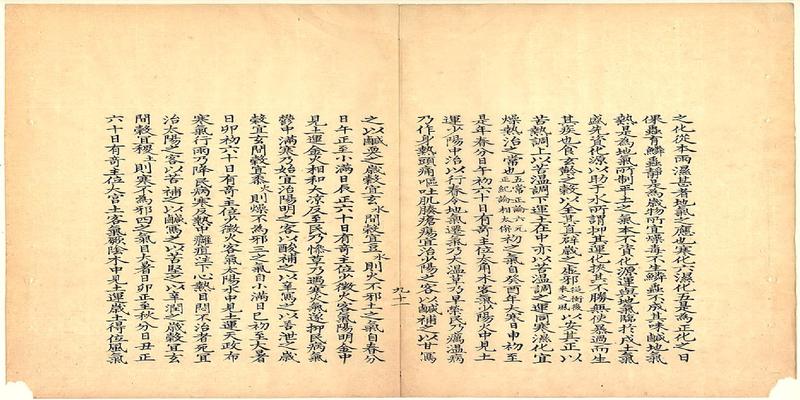 之化從本雨濕甚者地氣之應也寒化六濕化五是為正化之日
倮蟲育鱗蟲靜是為歲物所宜燥毒不生鱗蟲不成其味鹹地氣
熱是為地氣所制平土之氣本不資化源運與地氣臨於戌土氣
盛先資化源以助于水所謂抑其運化扶其不勝無使暴過而生
其疾也食玄黅之穀以全其真辟歲之虛邪從衝後來之風以安其正以
苦熱調上以苦溫調下運土在中亦以苦溫調之運同寒濕化宜
燥熱治之常也五常正論六元正紀論相太併初之氣自癸酉年大寒日申初至
是年春分日午初六十日有奇主位太角木客氣少陽火中見土
運少陽中治以行春令地氣遷氣乃大溫草乃早榮民乃癘溫病
乃作身熱頭痛嘔吐肌腠瘡瘍宜治少陽之客以鹹補之以甘瀉
九十一
之以鹹耎之歲穀宜玄水間穀宜豆水則火不邪二之氣自春分
日午正至小滿日辰正六十日有奇主位少徵火客氣陽明金中
見土運金火相和大凉反至民乃慘草乃遇寒火氣遂抑民病氣
鬱中滿寒乃始宜治陽明之客以酸補之以辛瀉之以苦泄之歲
穀宜玄間穀宜黍火則燥不為邪三之氣自小滿日巳初至大暑
日卯初六十日有奇主位少徵火客氣太陽水中見土運天政布
寒氣行雨乃降民病寒反熱中癰疽注下心熱瞀悶不治者死宜
治太陽之客以苦補之以鹹瀉之以苦堅之以辛潤之歲穀宜玄
間穀宜稷土則寒不為邪四之氣自大暑日卯正至秋分日丑正
六十日有奇主位太宮土客氣厥陰木中見土運歲土得位風氣